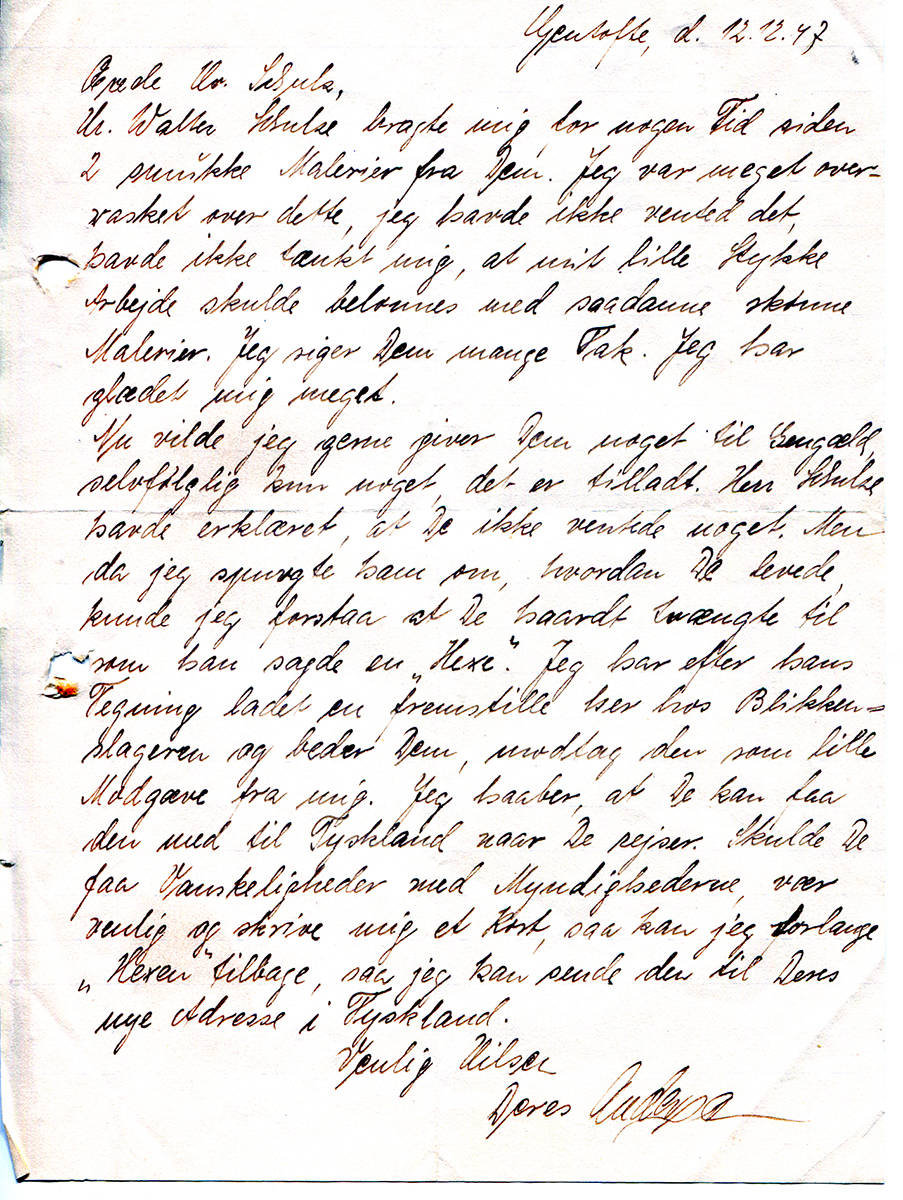 Gentofte, d. 12.12.47
Ærede Hr. Schulz,
Hr. Walter Schulze bragte mig for nogen Tid siden
2 smukke Malerier fra Dem. Jeg var meget over-
rasket over dette, jeg havde ikke vented det,
havde ikke tænkt mig, at mit lille Stykke
Arbejde skulde belonnes med saadanne skønne
Malerier. Jeg siger Dem mange Tak. Jeg har
glædet mig meget.
Nu vilde jeg gerne giver Dem noget til Gengæld,
selvfølglig kun noget, det er tilladt. Herr Schulze
havde erklæret, at De ikke ventede noget. Men
da jeg spurgte ham om, hvordan De levede,
kunde jeg forstaa at De haardt trængte til
som han sagde en „Hexe“. Jeg har efter hans
Tegning ladet en fremstille her hos Blikken-
slageren og beder Dem, modtag den som lille
Modgave fra mig. Jeg haaber, at De kan faa
den med til Tyskland naar De rejser. Skulde De
faa Vanskeligheder med Myndighederne, vær
venlig og skrive mig et Kort, saa kan jeg forlange
„Hexen“ tilbage, saa jeg kan sende den til Deres
nye Adresse i Tyskland.
Venlig Hilsen
Deres